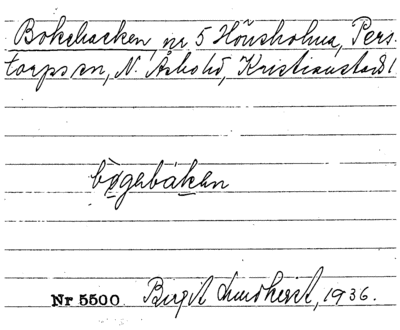 Bokebacken, nr 5 Hönsholma, Pers-
torps sn, N. Åsbohd, Kristianstads l
bögerbäken
Nr 5500 Birgit Lundkvist, 1936.